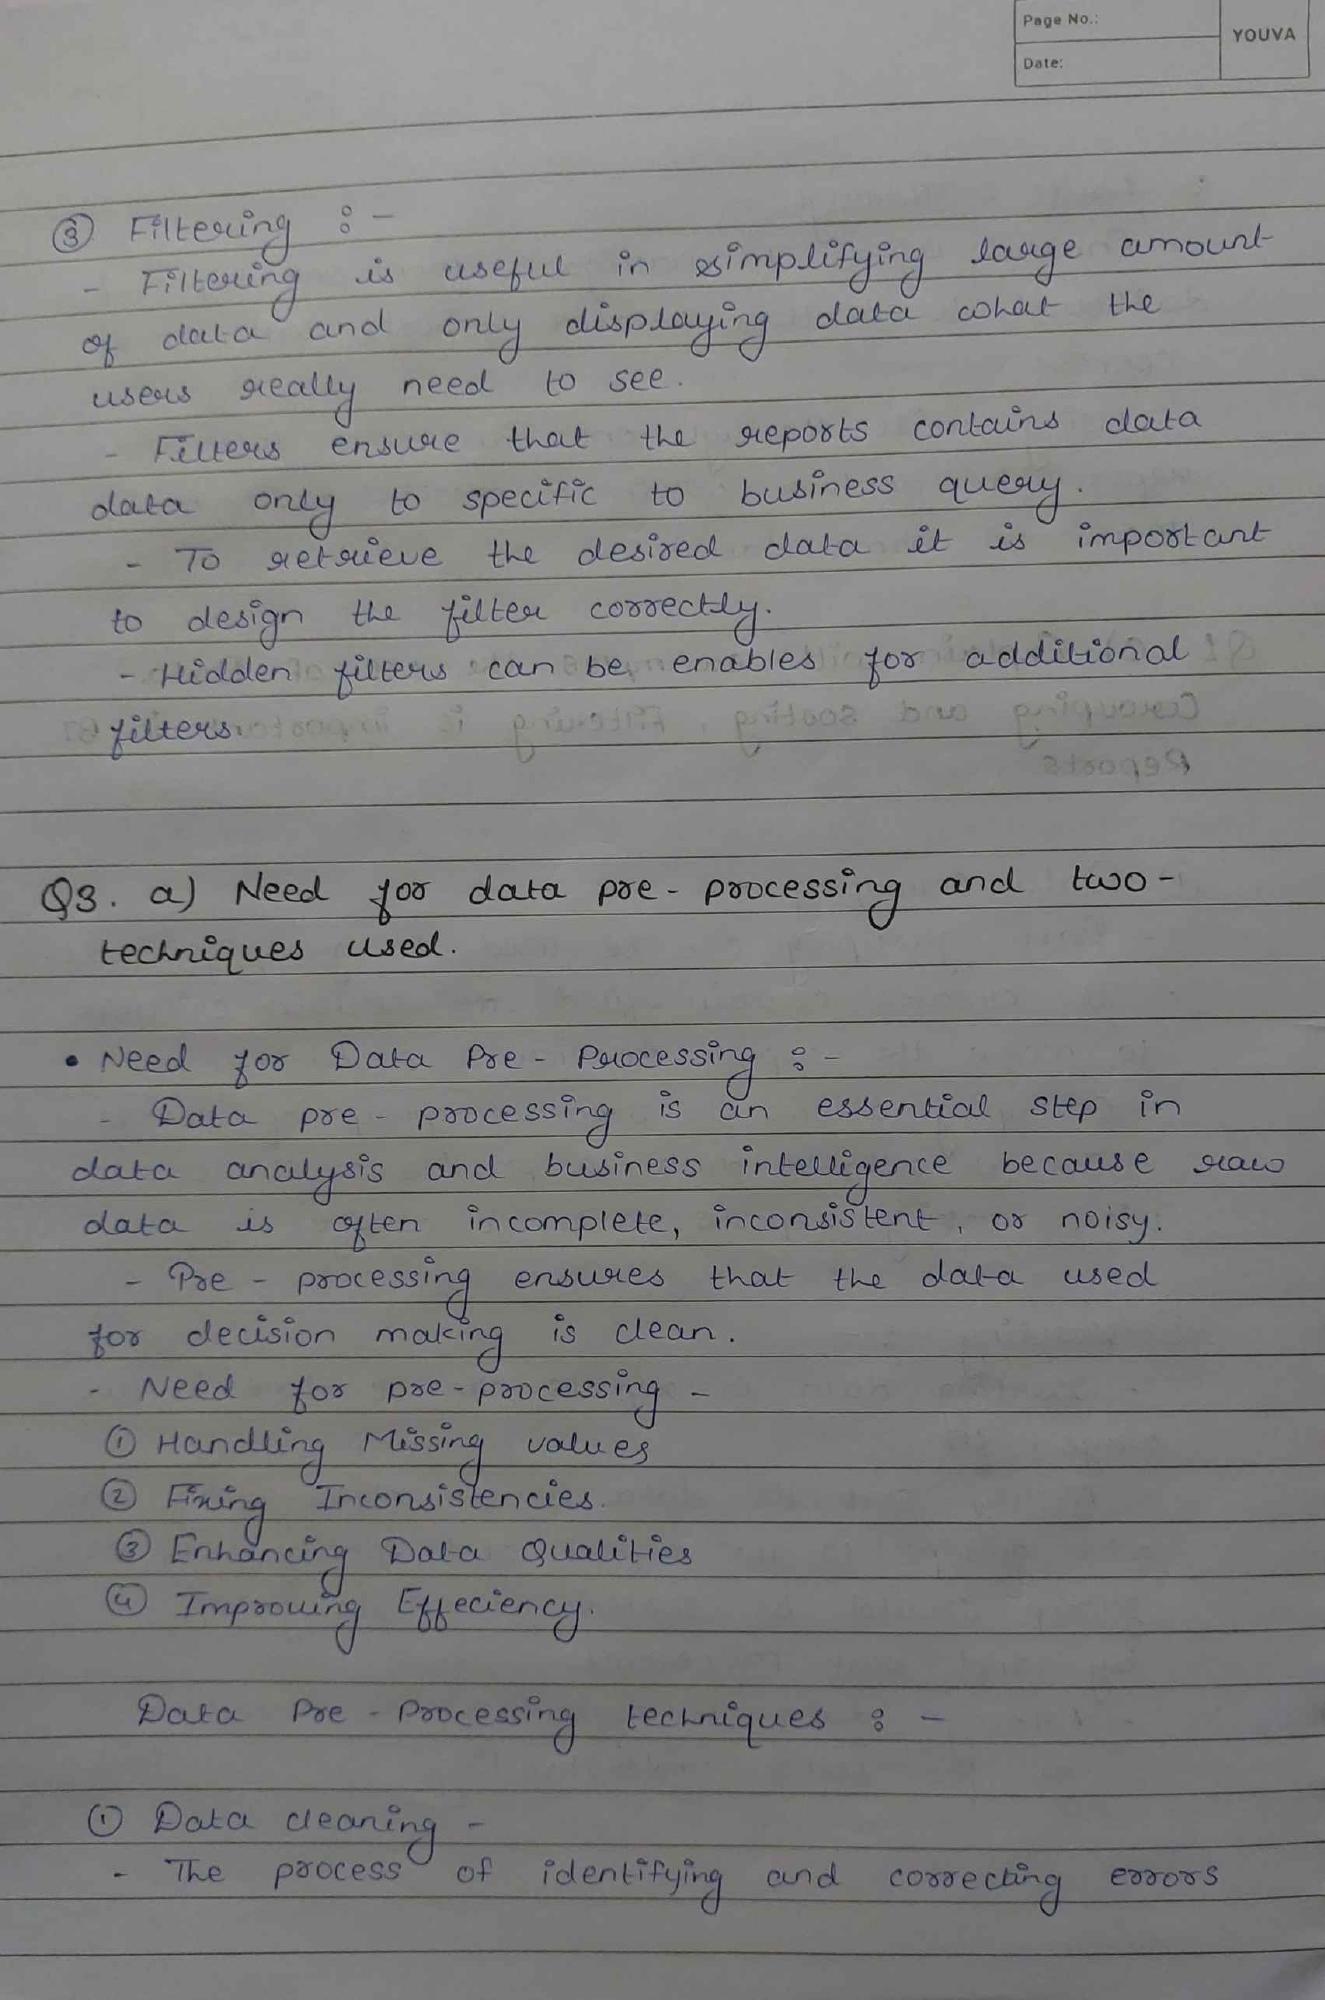 Page No.:
YOUVA
Date:
③ Filtering :-
- Filtering is useful in simplifying large amount
of data and only displaying data what the
users really need to see.
- Filters ensure that the reports contains data
data only to specific to business query.
- To retrieve the desired data it is important
to design the filter correctly.
- Hidden filters can be enables for additional
filters.
Q3. a) Need for data pre-processing and two-
techniques used.
• Need for Data Pre-Processing :-
- Data pre-processing is an essential step in
data analysis and business intelligence because raw
data is often incomplete, inconsistent, or noisy.
- Pre-processing ensures that the data used
for decision making is clean.
- Need for pre-processing -
① Handling Missing values
② Fixing Inconsistencies.
③ Enhancing Data Qualities
④ Improving Effeciency.
Data Pre-Processing techniques :-
① Data cleaning -
- The process of identifying and correcting errors